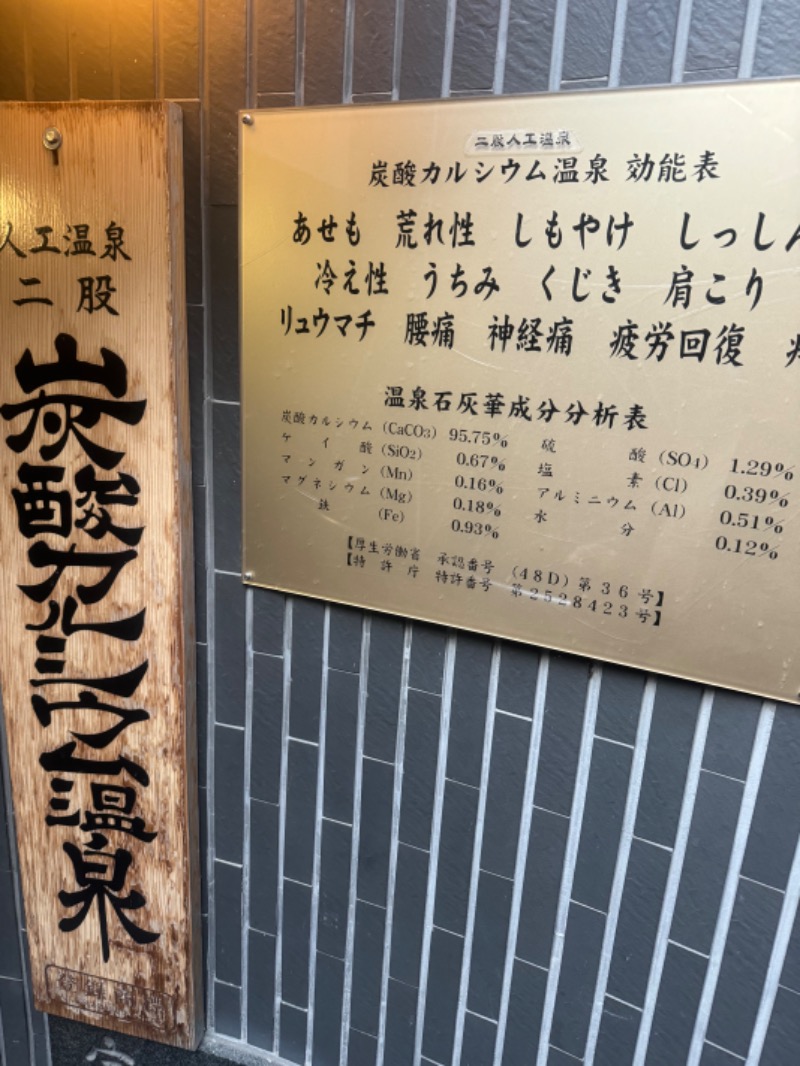 人工温泉
二股
炭酸カルシウム温泉
二股人工温泉
炭酸カルシウム温泉 効能表
あせも 荒れ性 しもやけ しっしん
冷え性 うちみ くじき 肩こり
リュウマチ 腰痛 神経痛 疲労回復
温泉石灰華成分分析表
炭酸カルシウム (CaCO3) 95.75%
ケイ酸 (SiO2) 0.67%
マンガン (Mn) 0.16%
マグネシウム (Mg) 0.18%
鉄 (Fe) 0.93%
硫酸 (SO4) 1.29%
塩素 (Cl) 0.39%
アルミニウム (Al) 0.51%
水分 0.12%
【厚生労働省 承認番号 (48D)第36号】
【特許庁 特許番号 第2528423号】